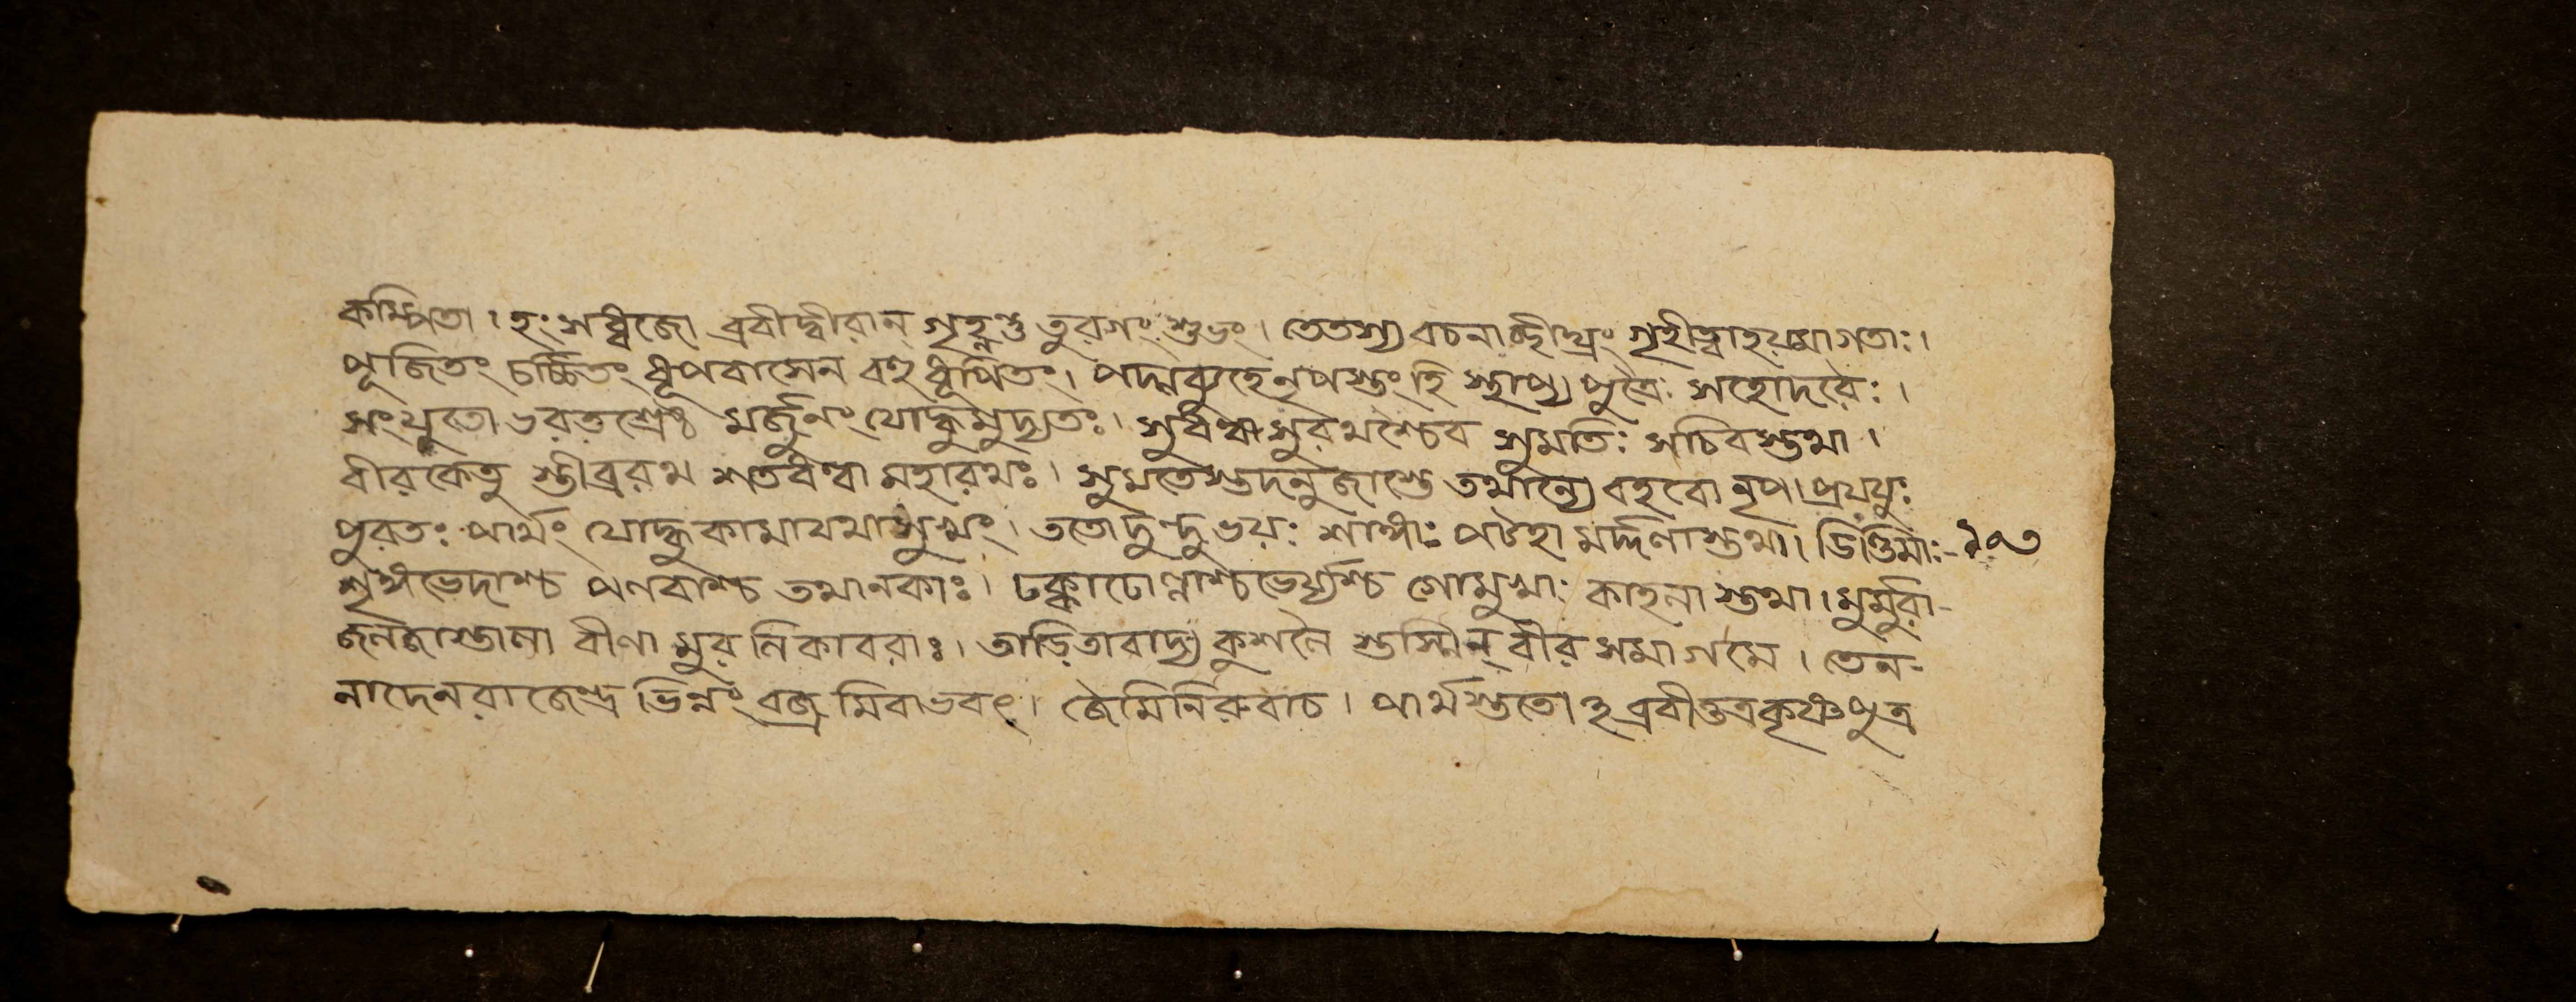 কম্পিতা। হংসধ্বজো ব্রবীদ্বীরান্ গৃহ্নন্তু তুরগং শুভং। তেতস্য বচনাচ্ছীঘ্রং গৃহীত্বাহয়মাগতাঃ।
পূজিতং চর্চ্চিতং ধূপবাসেন বহু ধূপিতং। পদ্মব্যুহেনৃপস্তং হি স্থাপ্য পুত্রৈঃ সহোদরৈঃ।
সংযুতো ভরতশ্রেষ্ঠ মর্জুনং যোদ্ধুমুদ্যতঃ। সুধন্বা সুরথশ্চৈব সুমতিঃ সচিবস্তথা।
বীরকেতু স্তীব্ররথ শতধন্বা মহারথঃ। সুমতেস্তদনুজাস্তে তথান্যে বহবো নৃপ। প্রযযুঃ
পুরতঃ পার্থং যোদ্ধুকামাযথাসুখং। ততোদুন্দুভয়ঃ শাঙ্খাঃ পটহা মর্দ্দলাস্তথা। ডিণ্ডিমাঃ-
শৃঙ্গভেদাশ্চ পণবাশ্চ তথানকাঃ। ঢক্কাঢোল্লাশ্চভের্য্যশ্চ গোমুখাঃ কাহলা স্তথা। মুর্মুরা-
জলজাস্তালা বীণা মুর লিকাবরাঃ। তাড়িতাবাদ্য কুশলৈ স্তস্মিন্ বীর সমাগমে। তেন-
নাদেনরাজেন্দ্র ভিন্নং বজ্র মিবাভবৎ। জৈমিনিরুবাচ। পার্থস্ততো হব্রবীত্তত্রকৃষ্ণপুত্র